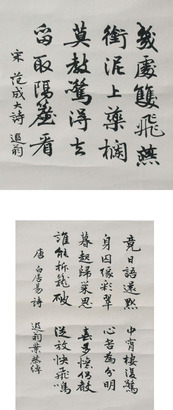 幾處雙飛燕
銜泥上藥欄
莫教驚得去
留取隔簾看
宋 范成大詩 遐翁
竟日語還默 中宵棲復驚
身囚緣彩翠 心苦為分明
暮起歸巢思 春多憶侶聲
誰能拆籠破 從放快飛鳴
唐 白居易詩 遐翁葉恭綽